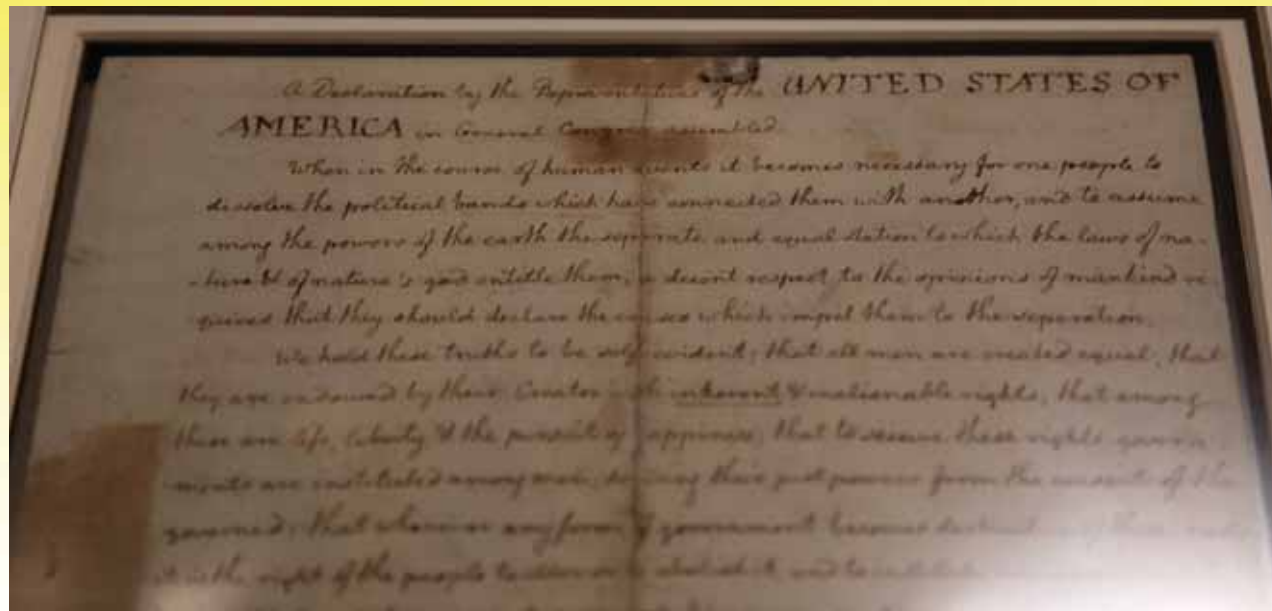 A Declaration by the Representatives of the UNITED STATES OF
AMERICA in General Congress assembled
When in the course of human events it becomes necessary for one people to
dissolve the political bands which have connected them with another, and to assume
among the powers of the earth the separate and equal station to which the laws of na-
-ture & of nature's god entitle them, a decent respect to the opinions of mankind re-
quires that they should declare the causes which impel them to the separation.
We hold these truths to be self evident; that all men are created equal; that
they are endowed by their Creator with inherent & inalienable rights; that among
these are life, liberty & the pursuit of happiness; that to secure these rights, govern
-ments are instituted among men, deriving their just powers from the consent of the
governed; that whenever any form of government becomes destructive of these ends
it is the right of the people to alter or to abolish it and to institute